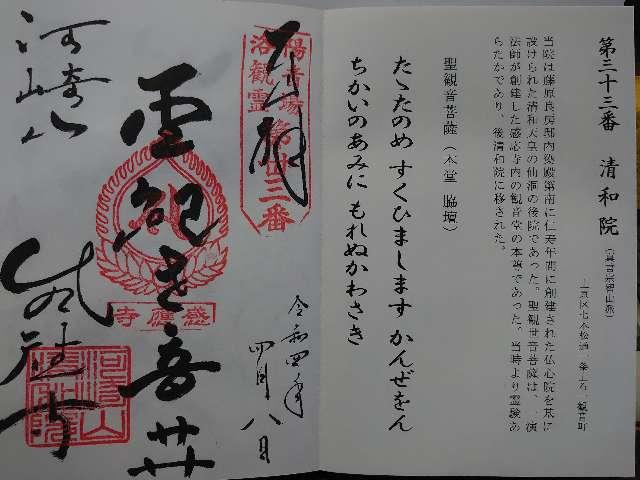 第三十三番　清和院（真言宗智山派）
上京区七本松通一条上る一観音町
当院は藤原良房邸内染殿第南に仁寿年間に創建された仏心院を基に
設けられた清和天皇の仙洞の後院であった。聖観世音菩薩は、一演
法師が創建した感応寺内の観音堂の本尊であった。当時より霊験あ
らたかであり、後清和院に移された。
聖観音菩薩（本堂 脇壇）
たゞたのめ すくひまします かんぜをん
ちかいのあみに もれぬかわさき
奉拝
洛陽観音霊場第卅三番
令和四年
四月八日
聖観世音菩薩
感應寺
河崎山
感應寺